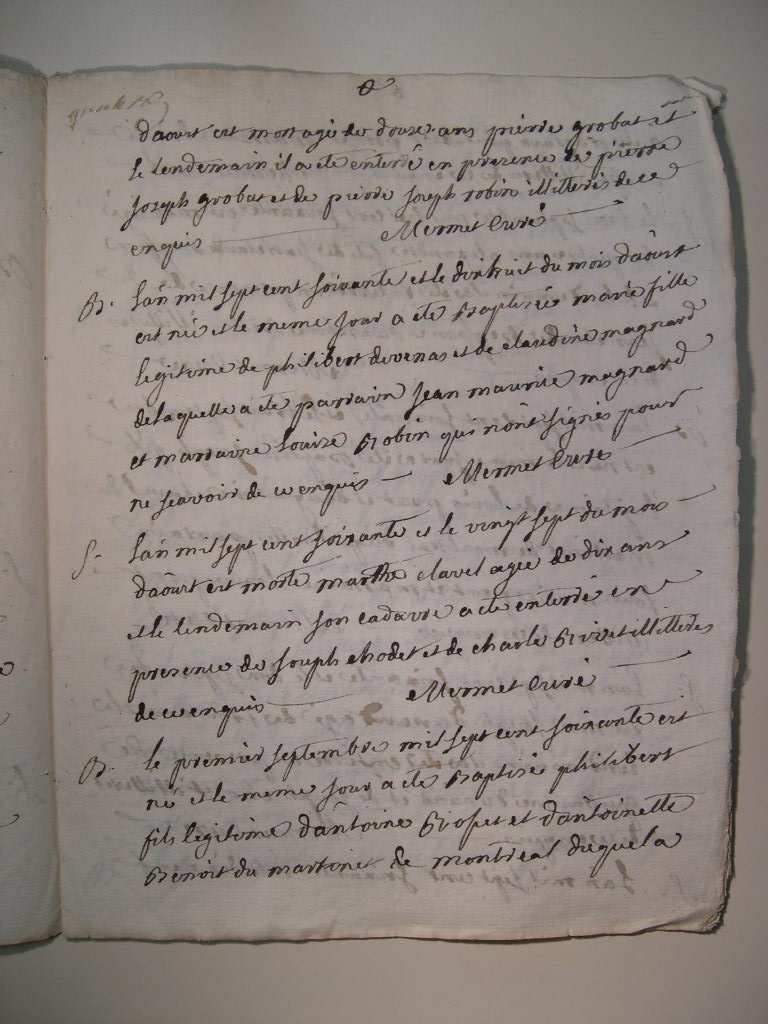 daoust est mort agé de douze ans pierre grobat et
le lendemain il a eté enterré en presence de pierre
joseph grobat et de pierre joseph robin illitterés de ce
enquis Mermet Curé
B. lan mil sept cent soixante et le dixhuit du mois daoust
est né et le meme jour a eté Baptisée marie fille
legitime de philibert devenas et de claudine magnard
de laquelle a eté parrain jean maurice magnard
et marraine louise Robin qui nont signés pour
ne scavoir de ce enquis Mermet Curé
S. lan mil sept cent soixante et le vingt sept du mois
daoust est morte marthe clavel agée de dix ans
et le lendemain son cadavre a eté enterré en
presence de joseph chodet et de charle Rivet illitterés
de ce enquis Mermet Curé
B. le premier septembre mil sept cent soixante est
né et le meme jour a eté Baptisé philibert
fils legitime dantoine et dantoinette
Benoit du martinet de montreal duquel a